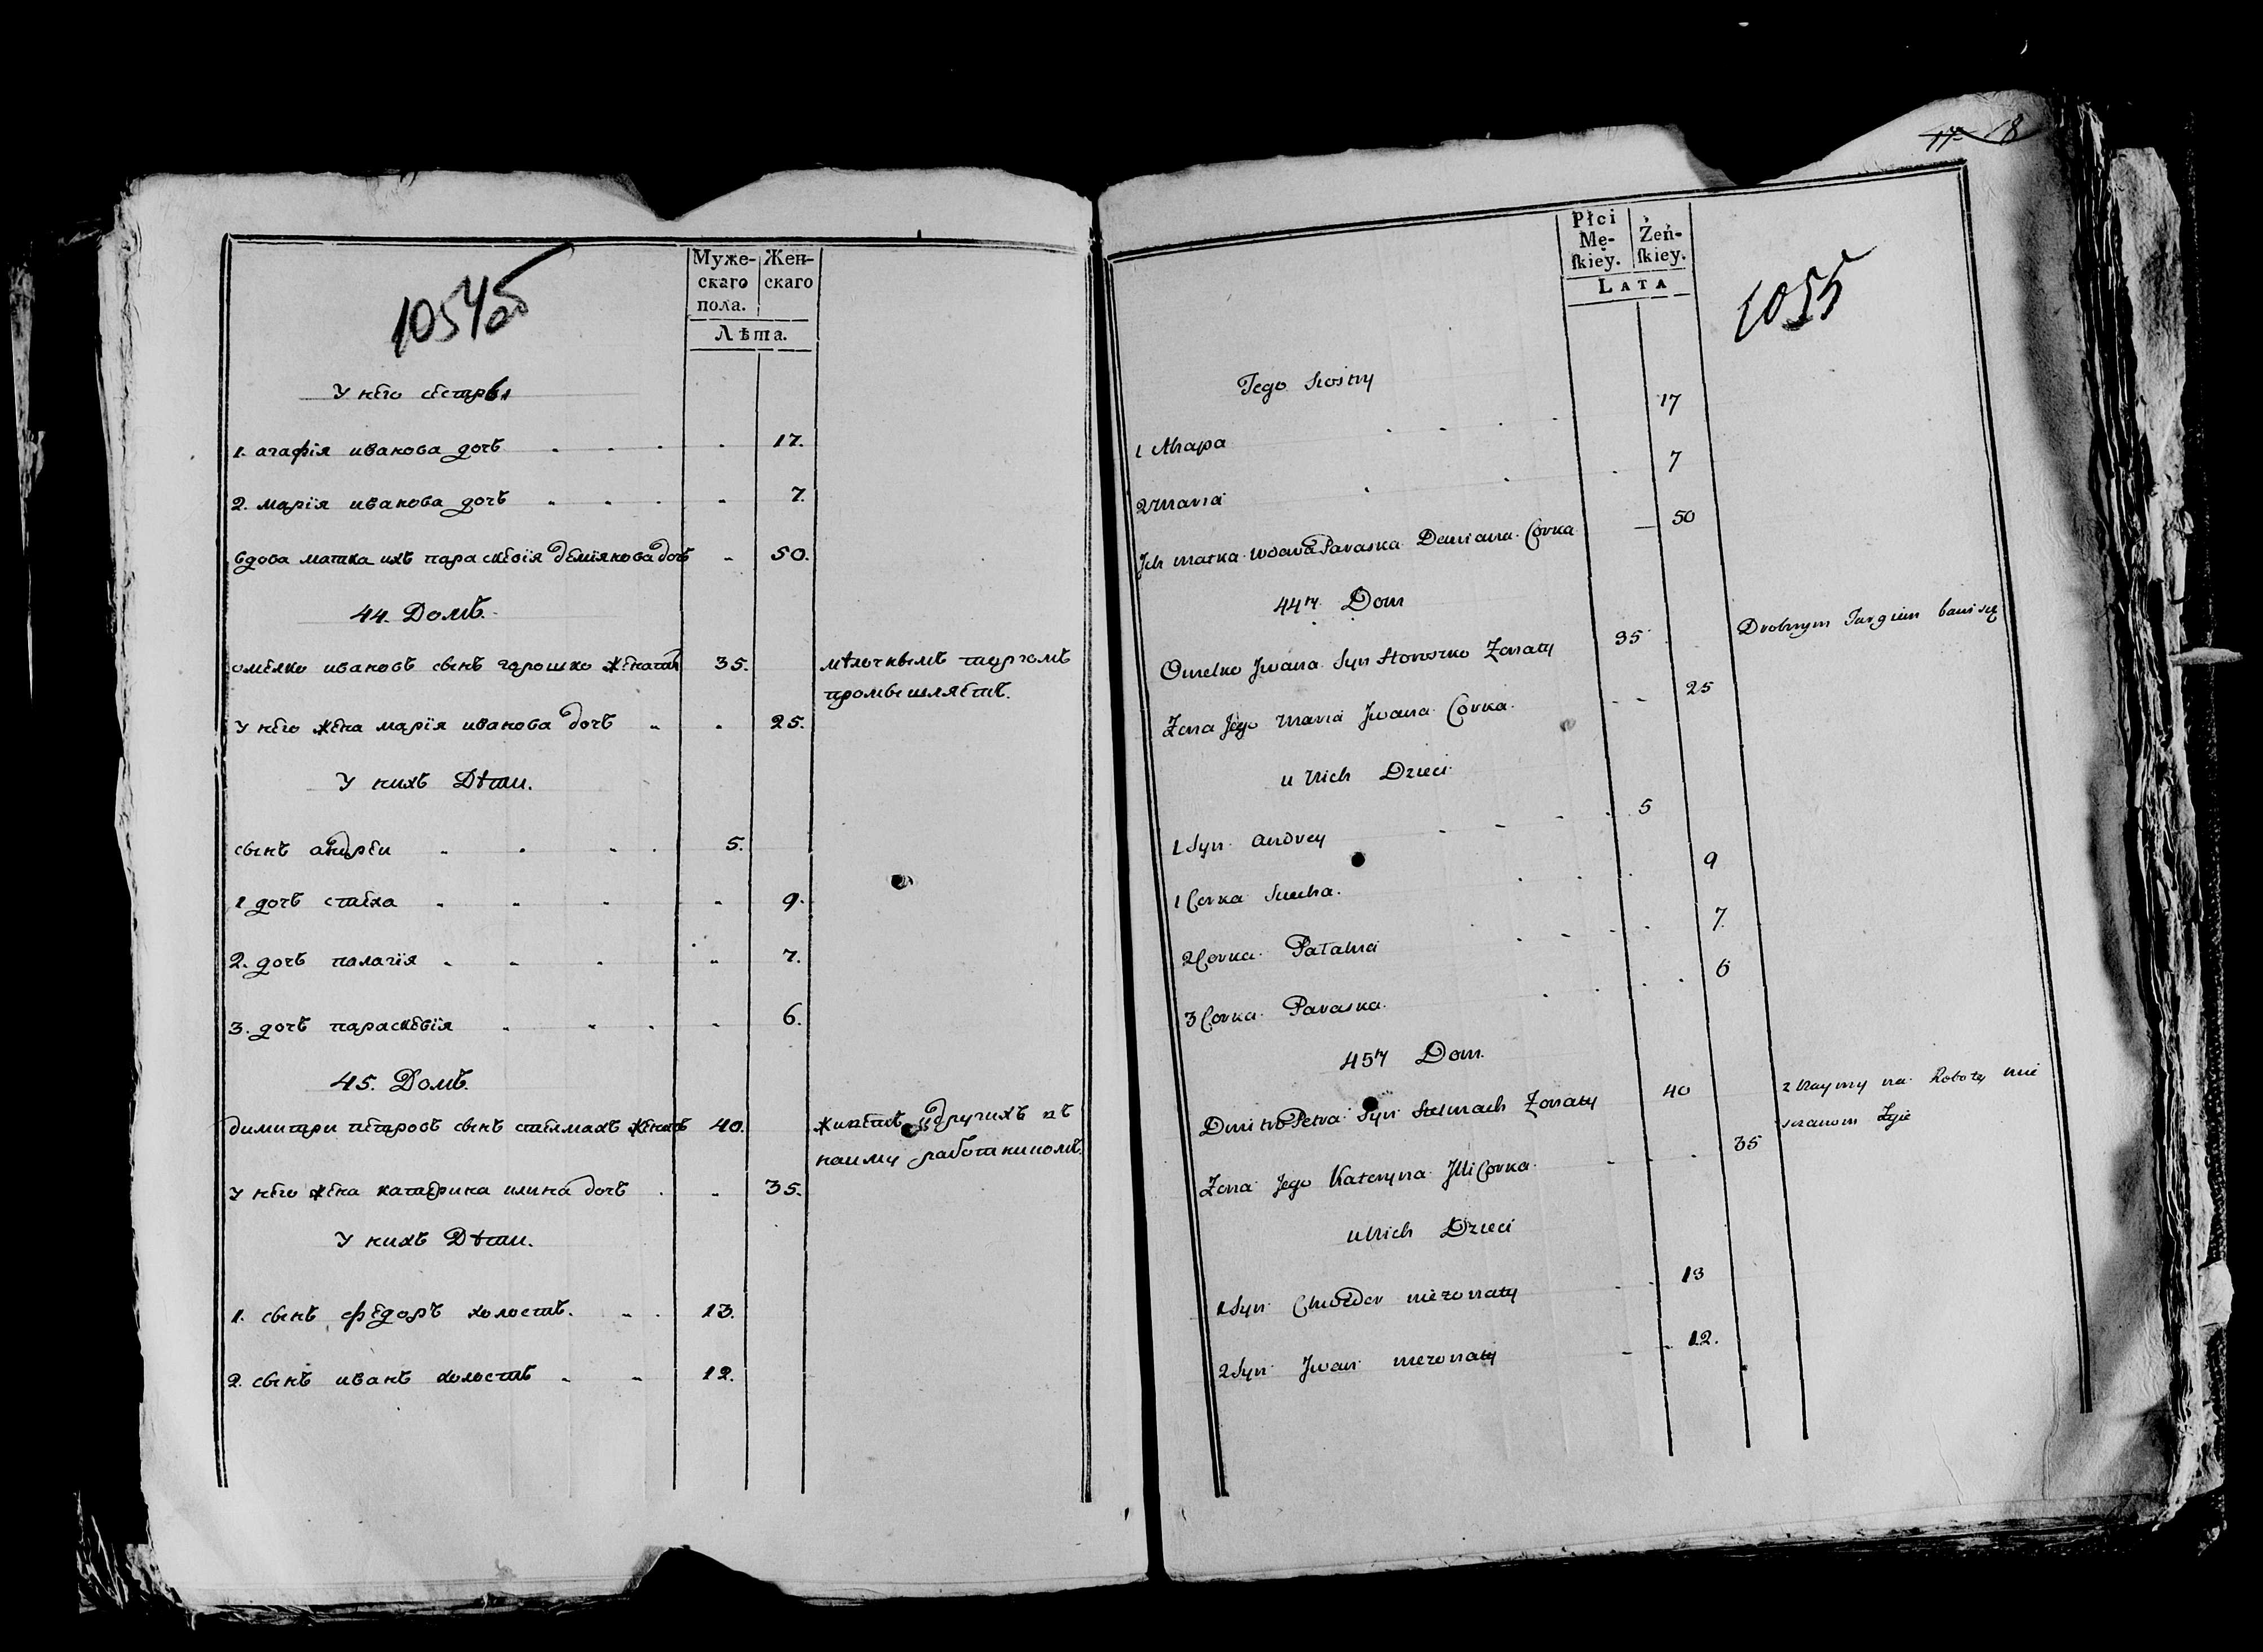 1054об
Муже-
скаго
пола.
Жен-
скаго
Лѣта.
У него сестры
1. агафія иванова дочь 17.
2. марія иванова дочь 7.
вдова матка ихъ параскевія деміянова дочь 50.
44. Домъ.
омелко ивановъ сынъ горошко женатъ 35. мѣлочнымъ торгомъ
промышляетъ.
У него жена марія иванова дочь 25.
У нихъ Дѣти.
сынъ андреи 5.
1 дочь стеха 9.
2. дочь палагія 7.
3. дочь параскевія 6.
45. Домъ.
димитри петровъ сынъ стелмахъ женатъ 40. живетъ у другихъ въ
найму работникомъ.
У него жена катерина илина дочь 35.
У нихъ Дѣти.
1. сынъ федоръ холостъ. 13.
2. сынъ иванъ холостъ 12.
17 18
Płci
Mę-
ſkiey.
Żeń-
ſkiey.
LATA
1055
Jego Siostry
1 Ahapa 17
2 Maria 7
Ich matka wdowa Paraska Demiana Corka 50
44ty Dom
Omelko Jwana Syn Zonaty 35 Drobnym Targiem bawi się
Zona Jego Maria Jwana Corka 25
u Nich Dzieci
1 Syn Andrey 5
1 Corka Stecha. 9
2 Corka Palahia 7.
3 Corka Paraska 6
45ty Dom.
Dmitro Petra Syn Stelmach Zonaty 40 z Naymy na Roboty
Żyie
Zona Jego Kateryna Jlli Corka 35
u Nich Dzieci
1 Syn Chwedor niezonaty 13
2 Syn Jwan niezonaty 12.